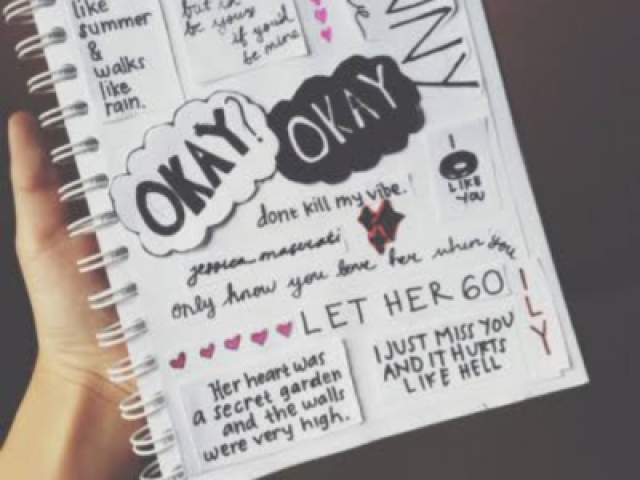 like
summer
&
walks
like
rain.
but i'll
be yours
if you'd
be mine
NNY
OKAY?
OKAY
I
LIKE
YOU
dont kill my vibe.
jessica
only know you love her when you
LET HER GO
I
L
Y
Her heart was
a secret garden
and the walls
were very high.
I JUST MISS YOU
AND IT HURTS
LIKE HELL